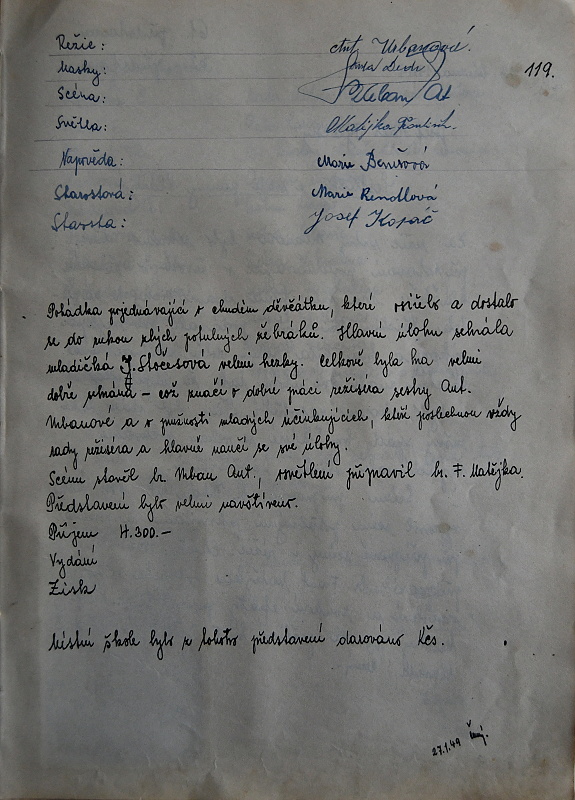 119.
Režie: Ant. Urbanová.
Masky:
Scéna: Urban Ant
Světla: Matějka František.
Nápověda: Marie Benešová
Starostová: Marie Rendlová
Starosta: Josef Kopáč
Pohádka pojednávající o chudém děvčátku, které osiřelo a dostalo
se do rukou zlých potulných žebráků. Hlavní úlohu sehrála
mladičká J. Stočesová velmi hezky. Celkově byla hra velmi
dobře sehrána – což značí o dobré práci režiséra sestry Ant.
Urbanové a o pružnosti mladých účinkujících, kteří poslechnou vždy
rady režiséra a hlavně naučí se své úlohy.
Scénu stavěl br. Urban Ant., osvětlení připravil br. F. Matějka.
Představení bylo velmi navštíveno.
Příjem 4.300.–
Vydání
Zisk
Místní škole bylo z tohoto představení darováno Kčs.
27.1.49